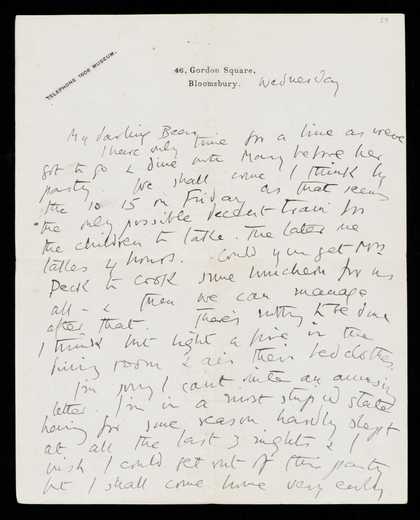 59
TELEPHONE 1608 MUSEUM.
46, Gordon Square,
Bloomsbury.
Wednesday
My darling Bear
I have only time for a line as we've
got to go & dine with Mary before her
party. We shall come I think by
the 10 15 on Friday as that seems
the only possible decent train for
the children to take. The later one
takes 4 hours. Could you get Mrs
Peck to cook some luncheon for us
all - & then we can manage
after that. There's nothing to be done
I think but light a fire in the
living room & air their bedclothes.
I'm sorry I can't write an amusing
letter. I'm in a most stupid state
having for some reason hardly slept
at all the last 3 nights & I
wish I could get out of this party
but I shall come home very early